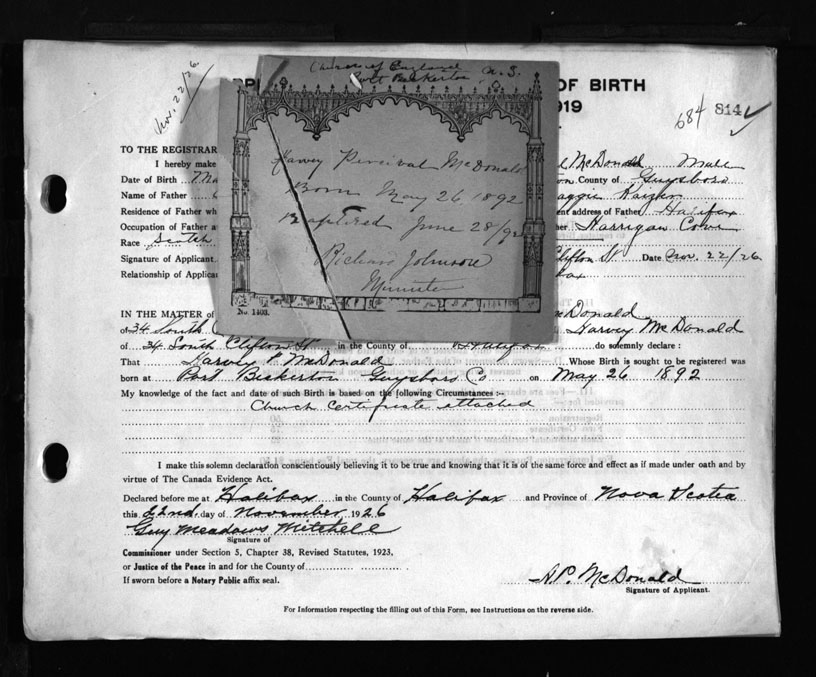 Nov. 22/26
Church of England
Port Bickerton, N.S.
OF BIRTH
1919
684 814
Harvey Percival McDonald
Born May 26 1892
Baptized June 28/92
Richard Johnson
Minister
No. 1403.
TO THE REGISTRAR
I hereby make McDonald Male
Date of Birth County of Guysboro
Name of Father Maggie Kaizer
Residence of Father address of Father Halifax
Occupation of Father Harrigan Cove
Race Scotch
Signature of Applicant Clifton St Date Nov. 22/26
Relationship of Applicant
IN THE MATTER of McDonald
of 34 South Harvey McDonald
of 34 South Clifton St in the County of Halifax do solemnly declare :
That Harvey P. McDonald Whose Birth is sought to be registered was
born at Port Bickerton Guysboro Co on May 26 1892
My knowledge of the fact and date of such Birth is based on the following Circumstances :-
Church Certificate attached
I make this solemn declaration conscientiously believing it to be true and knowing that it is of the same force and effect as if made under oath and by
virtue of The Canada Evidence Act.
Declared before me at Halifax in the County of Halifax and Province of Nova Scotia
this 22nd. day of November 1926
Guy Meadows Mitchell
Signature of
Commissioner under Section 5, Chapter 38, Revised Statutes, 1923,
or Justice of the Peace in and for the County of
If sworn before a Notary Public affix seal.
H.P. McDonald
Signature of Applicant.
For Information respecting the filling out of this Form, see Instructions on the reverse side.